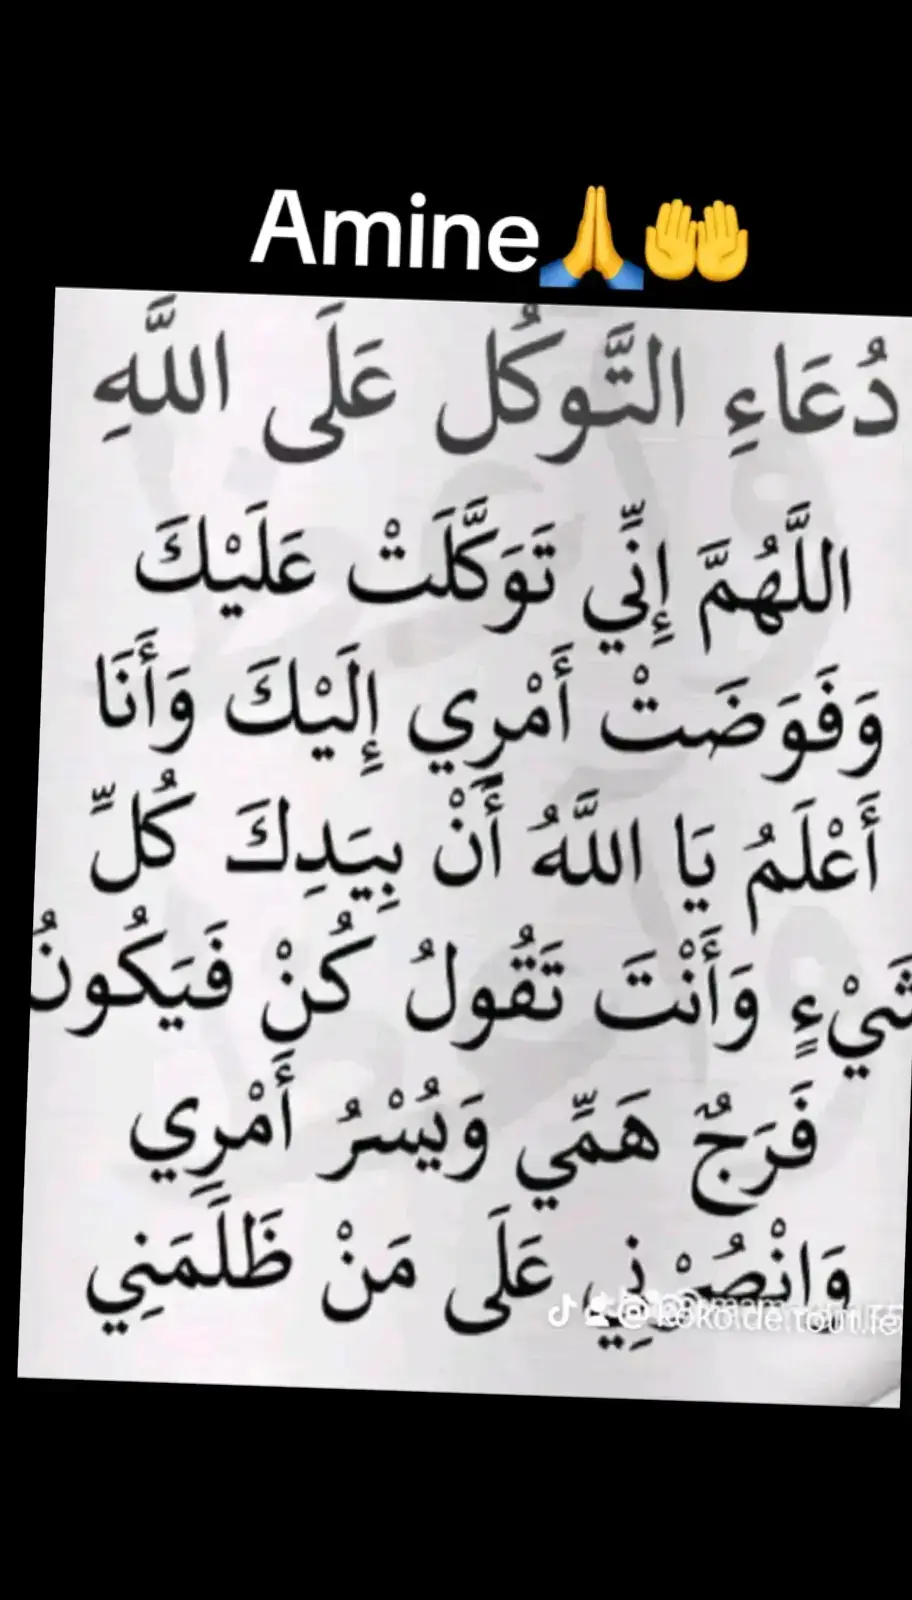 Amine🙏🤲
دُعَاءِ التَّوكُل عَلَى اللَّهِ
اللَّهُمَّ إِنِّي تَوَكَّلَتْ عَلَيْكَ
وَفَوَضَتْ أَمْرِي إِلَيْكَ وَأَنَا
أَعْلَمُ يَا اللَّهُ أَنْ بِيَدِكَ كُلِّ
شَيْءٍ وَأَنْتَ تَقُولُ كُنْ فَيَكُونُ
فَرَجٌ هَمِّي وَيُسْرُ أَمْرِي
وَانْصُرْنِي عَلَى مَنْ ظَلَمَنِي